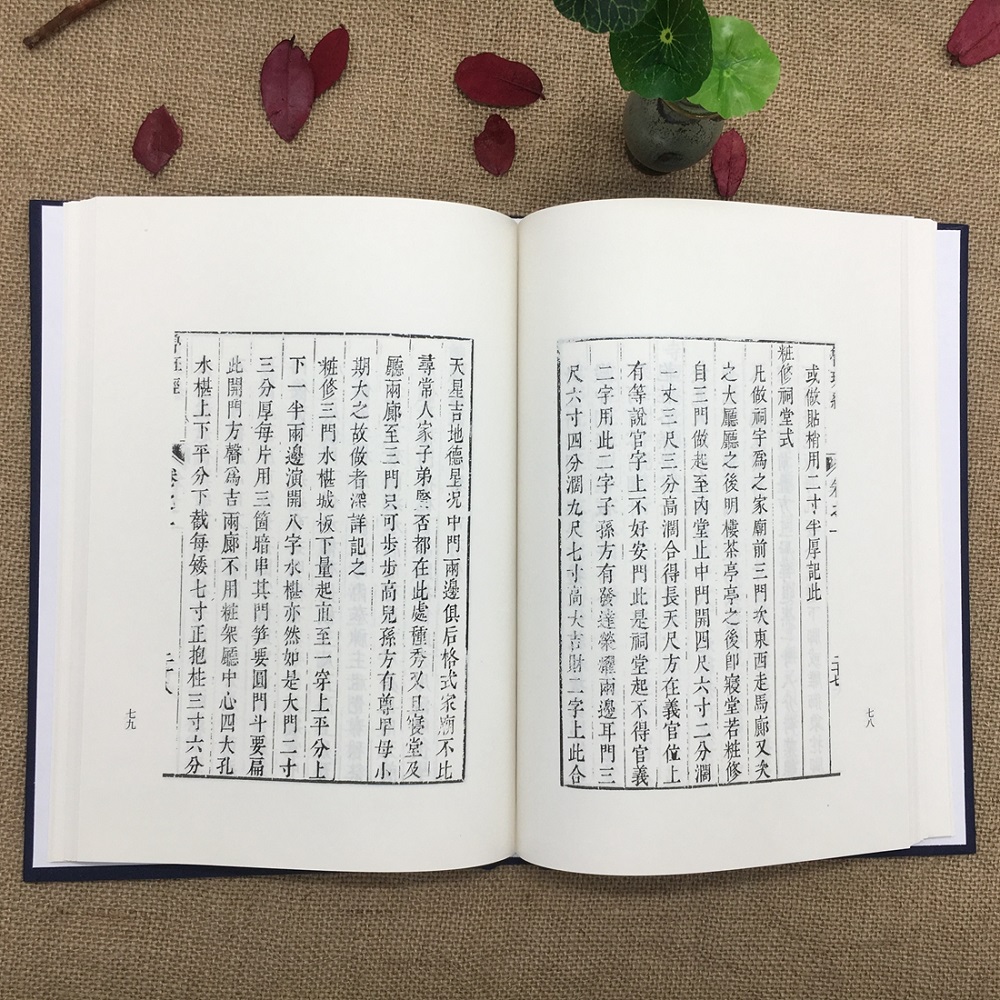 或做貼梢用二寸半厚記此
粧修祠堂式
凡做祠宇爲之家廟前三門次東西走馬廊又次
之大廳廳之後明樓茶亭亭之後卽寢堂若粧修
自三門做起至內堂止中門開四尺六寸二分濶
一丈三尺三分高濶合得長天尺方在義官位上
有等說官字上不好安門此是祠堂起不得官義
二字用此二字子孫方有發達榮耀兩邊耳門三
尺六寸四分濶九尺七寸高大吉財二字上此合
七八
天星吉地德星况中門兩邊俱后格式家廟不比
尋常人家子弟賢否都在此處種秀又且寢堂及
廳兩廊至三門只可步步高兒孫方有尊卑毋小
期大之故做者深詳記之
粧修三門水椹城板下量起直至一穿上平分上
下一半兩邊演開八字水椹亦然如是大門二寸
三分厚每片用三箇暗串其門笋要圓門斗要扁
此開門方𨍭爲吉兩廊不用粧架廳中心四大孔
水椹上下平分下截每矮七寸正抱柱三寸六分
魯班經
卷之一
二十八
七九